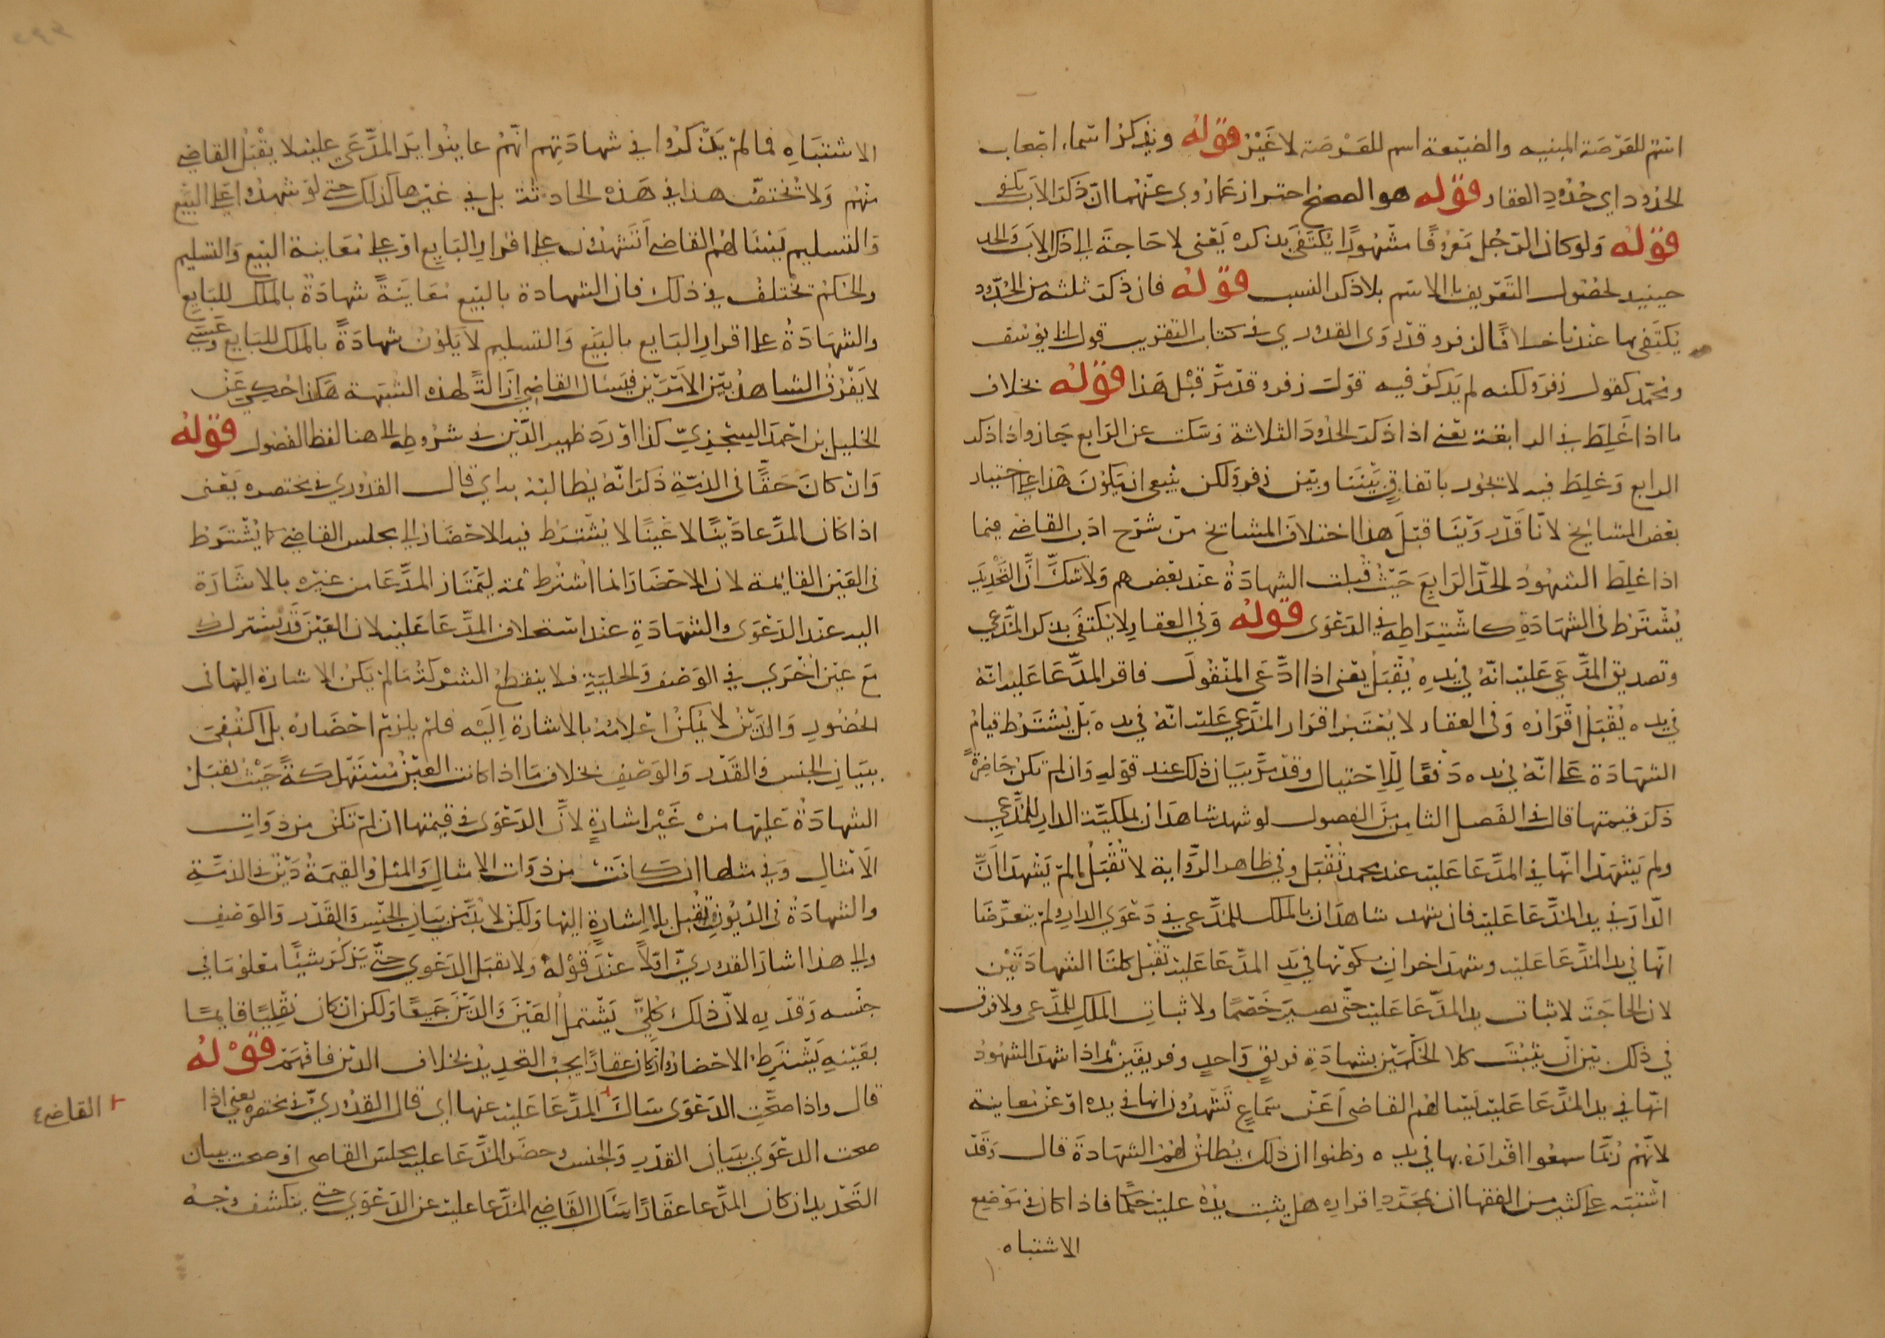 اسم للعرصة المبنيه والضيعة اسم للعرصة لا غير قوله ويذكر اسماء اصحاب
الحدود اي حدود العقار قوله هو الصحيح احتراز عما روي عنهما ان ذكر الاب يكفي
قوله ولو كان الرجل معروفا مشهورا يكتفي بذكره يعني لا حاجة الى ذكر الاب والجد
حينيد لحصول التعريف بالاسم بلا ذكر النسب قوله فان ذكر ثلثة من الحدود
يكتفي بها عندنا خلافا لزفر وقد روى القدوري في كتاب التقريب قول ابي يوسف
ومحمد كقول زفر ولكنه لم يذكر فيه قول زفر وقد مر قبل هذا قوله بخلاف
ما اذا غلط في الرابعة يعني اذا ذكر الحدود الثلاثة وسكت عن الرابع جاز واذا ذكر
الرابع وغلط فيه لا يجوز باتفاق بيننا وبين زفر ولكن ينبغي ان يكون هذا على اختيار
بعض المشايخ لانا قد روينا قبل هذا اختلاف المشايخ من شرح ادب القاضي فيما
اذا غلط الشهود لحد الرابع حيث قبلت الشهادة عند بعضهم ولا شك ان التحديد
يشترط في الشهادة كاشتراطه في الدعوى قوله وفي العقار لا يكتفي بذكر المدعي
وتصديق المدعي عليه انه في يده يقبل يعني اذا ادعى المنقول فاقر المدعا عليه انه
في يده يقبل اقراره وفي العقار لا يعتبر اقرار المدعي عليه انه في يده بل يشترط قيام
الشهادة على انه في يده دفعا للاحتيال وقد مر بيان ذلك عند قوله وان لم تكن حاضرة
ذكر قيمتها قال في الفصل الثامن من الفصول لو شهد شاهدان بملكية الدار للمدعي
ولم يشهدا انها في المدعا عليه عند محمد تقبل وفي ظاهر الرواية لا تقبل مالم يشهدا ان
الدار في يد المدعا عليه فان شهد شاهدان بالملك للمدعي في دعوى الدار ولم يتعرضا
انها في يد المدعا عليه وشهد اخران بكونها في يد المدعا عليه تقبل كلتا الشهادتين
لان الحاجة لاثبات يد المدعا عليه حتى يصير خصما ولاثبات الملك للمدعي ولا فرق
في ذلك بين ان يثبت كلا الحكمين بشهادة فريق واحد وفريقين ثم اذا شهد الشهود
انها في يد المدعا عليه يسالهم القاضي اعن سماع تشهدون انها في يده او عن معاينة
لانهم ربما سمعوا اقراره بها في يده وظنوا ان ذلك يطلق لهم الشهادة قال وقد
اشتبه على كثير من الفقها ان بمجرد اقراره هل يثبت يده عليه حكما فاذا كان في موضع
الاشتباه
الاشتباه فمالم يذكروا في شهادتهم انهم عاينوا يد المدعي عليه لا يقبل القاضي
منهم ولا تختص هذا في هذه الحادثة بل في غيرها كذلك حتى لو شهدوا على البيع
والتسليم يسالهم القاضي اتشهدون على اقرار البايع او على معاينة البيع والتسليم
والحكم يختلف في ذلك فان الشهادة بالبيع معاينة شهادة بالملك للبايع
والشهادة على اقرار البايع بالبيع والتسليم لا يكون شهادة بالملك للبايع وعسى
لا يفرق الشاهد بين الامرين فيسال القاضي ازالة لهذه الشبهة هكذا حكي عن
الخليل بن احمد السجزي كذا اورده ظهير الدين في شروطه الى هنا لفظ الفصول قوله
وان كان حقا في الذمة ذكر انه يطالبه به اي قال القدوري في مختصره يعني
اذا كان المدعا دينا لا عينا لا يشترط فيه الاحضار الى مجلس القاضي كما يشترط
في العين القايمة لان الاحضار انما اشترط ثمة ليمتاز المدعا من غيره بالاشارة
اليه عند الدعوى والشهادة عند استحلاف المدعا عليه لان العين قد يشترك
مع عين اخرى في الوصف والحلية فلا ينقطع الشركة مالم يكن الاشارة اليها في
الحضور والدين لا يمكن اعلامه بالاشارة اليه فلم يلزم احضاره بل اكتفى
ببيان الجنس والقدر والوصف بخلاف ما اذا كانت العين مستهلكة حيث يقبل
الشهادة عليها من غير اشارة لان الدعوى في قيمتها ان لم تكن من ذوات
الامثال وفي مثلها ان كانت من ذوات الامثال والمثل والقيمة دين في الذمة
والشهادة في الديون تقبل بلا اشارة اليها ولكن لا بد من بيان الجنس والقدر والوصف
والى هذا اشار القدوري اولا عند قوله ولا يقبل الدعوى حتى يذكر شيئا معلوما في
جنسه وقدره لان ذلك كلي يشتمل العين والدين جميعا ولكن ان كان نقليا قايما
بعينه يشترط الاحضار وان كان عقارا يجب التحديد بخلاف الدين فافهم قوله
قال واذا صحت الدعوى سال المدعا عليه عنها اي قال القدوري في مختصره يعني اذا
القاضي
صحت الدعوى ببيان القدر والجنس وحضر المدعا عليه مجلس القاضي او صحت ببيان
التحديد ان كان المدعا عقارا سال القاضي المدعا عليه عن الدعوى حتى ينكشف وجه